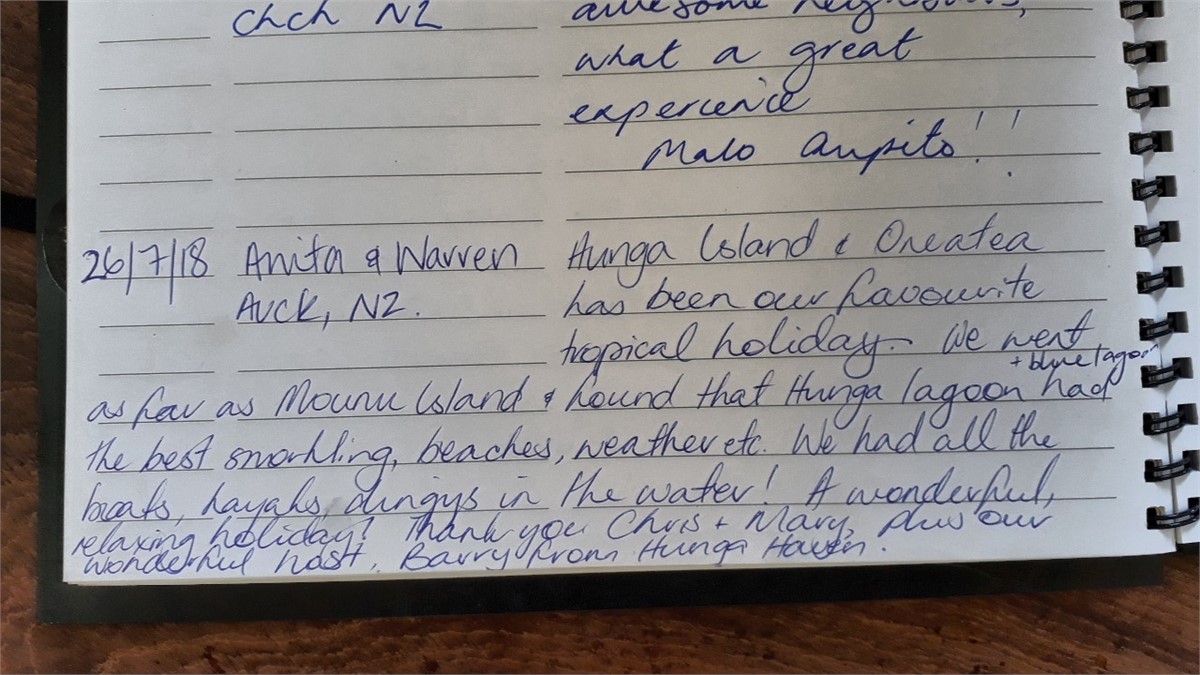 Chch NZ
awesome neighbours,
what a great
experience
Malo Aupito!!
26/7/18 Anita & Warren Hunga Island & Oneatea
Auck, NZ. has been our favourite
tropical holiday. We went
+ blue lagoon
as far as Mounu Island & found that Hunga lagoon had
the best snorkling, beaches, weather etc. We had all the
boats, kayaks, dingys in the water! A wonderful,
relaxing holiday! Thank you Chris + Mary, plus our
wonderful host, Barry from Hunga Haven.